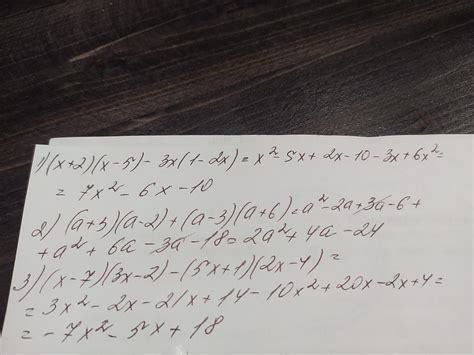 1) (x+2)(x-5)-3x(1-2x)=x²-5x+2x-10-3x+6x²=
=7x²-6x-10
2) (a+3)(a-2)+(a-3)(a+6)=a²-2a+3a-6+
+a²+6a-3a-18=2a²+4a-24
3) (x-7)(3x-2)-(5x+1)(2x-4)=
=3x²-2x-21x+14-10x²+20x-2x+4=
=-7x²-5x+18